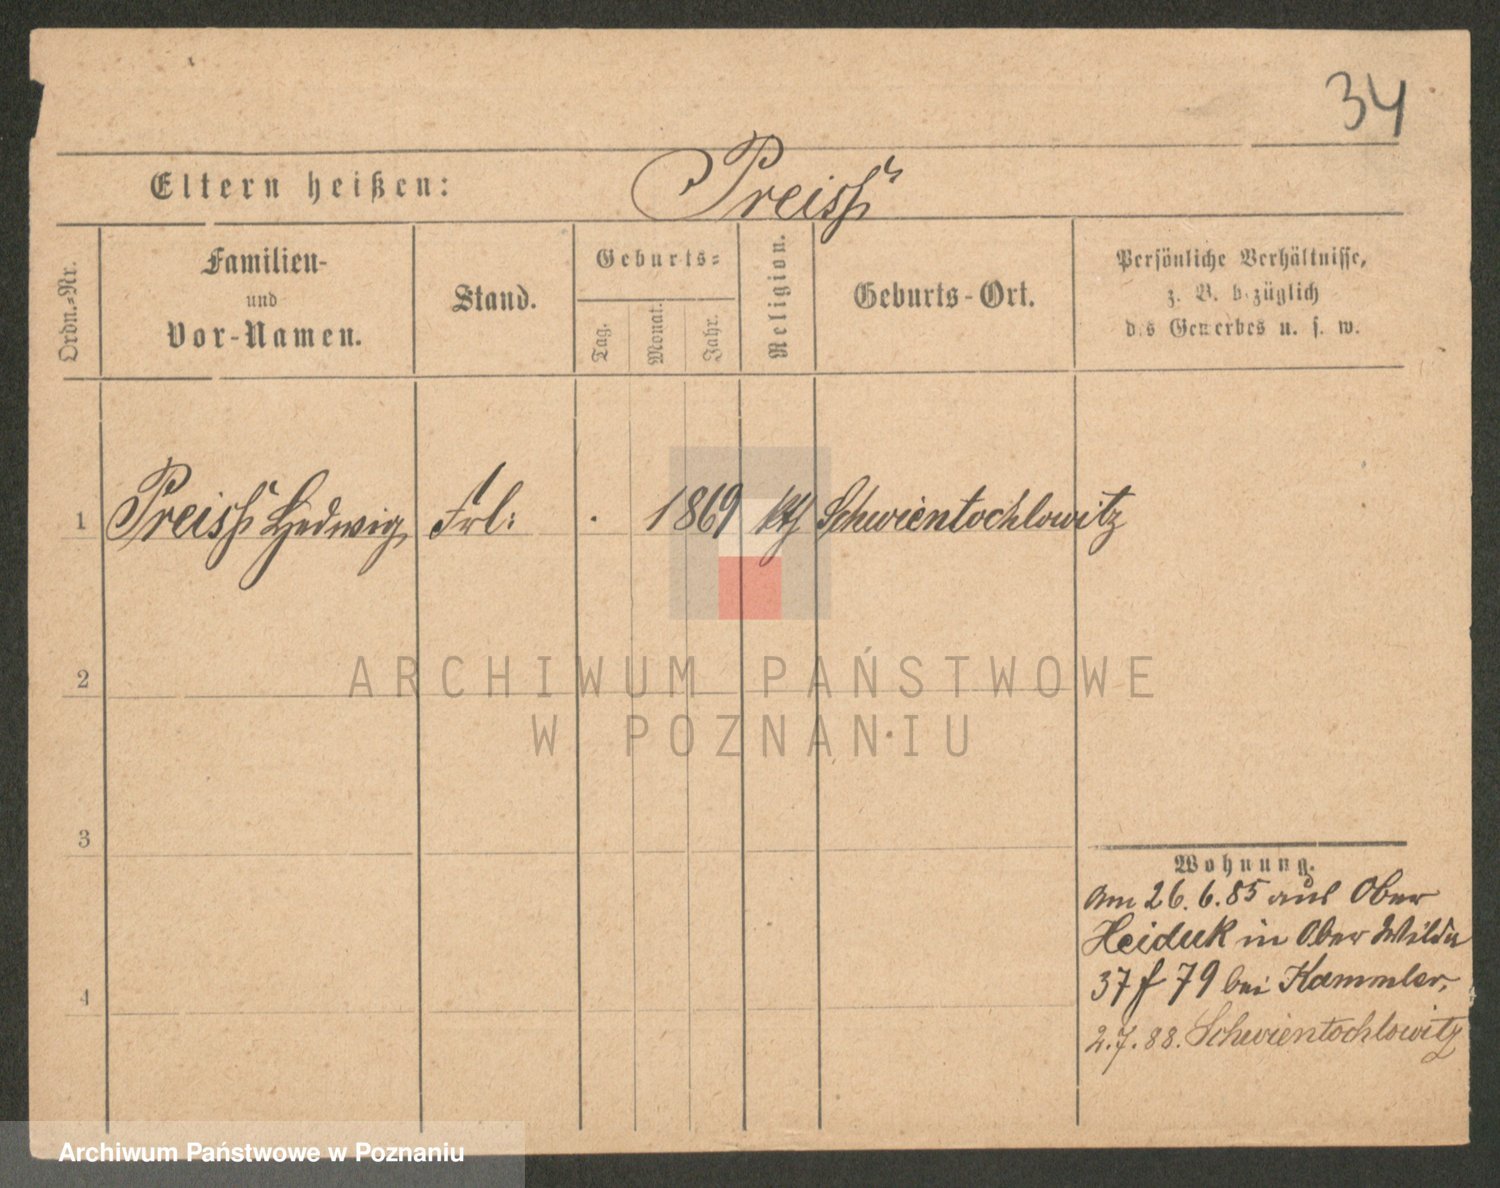 34
Eltern heißen: Preiss
Ordn.-Nr.
Familien-
und
Vor-Namen.
Stand.
Geburts-
Tag.
Monat.
Jahr.
Religion.
Geburts-Ort.
Persönliche Verhältnisse,
z. B. bezüglich
des Gewerbes u. s. w.
1 Preiss Hedwig Frl: . 1869 kth Schwientochlowitz
2
3
4
Wohnung.
am 26.6.85 aus Ober
Heiduk in Ober Wilda
37 f 79 bei Kammler.
2.7.88. Schwientochlowitz
ARCHIWUM PAŃSTWOWE
W POZNANIU
Archiwum Państwowe w Poznaniu